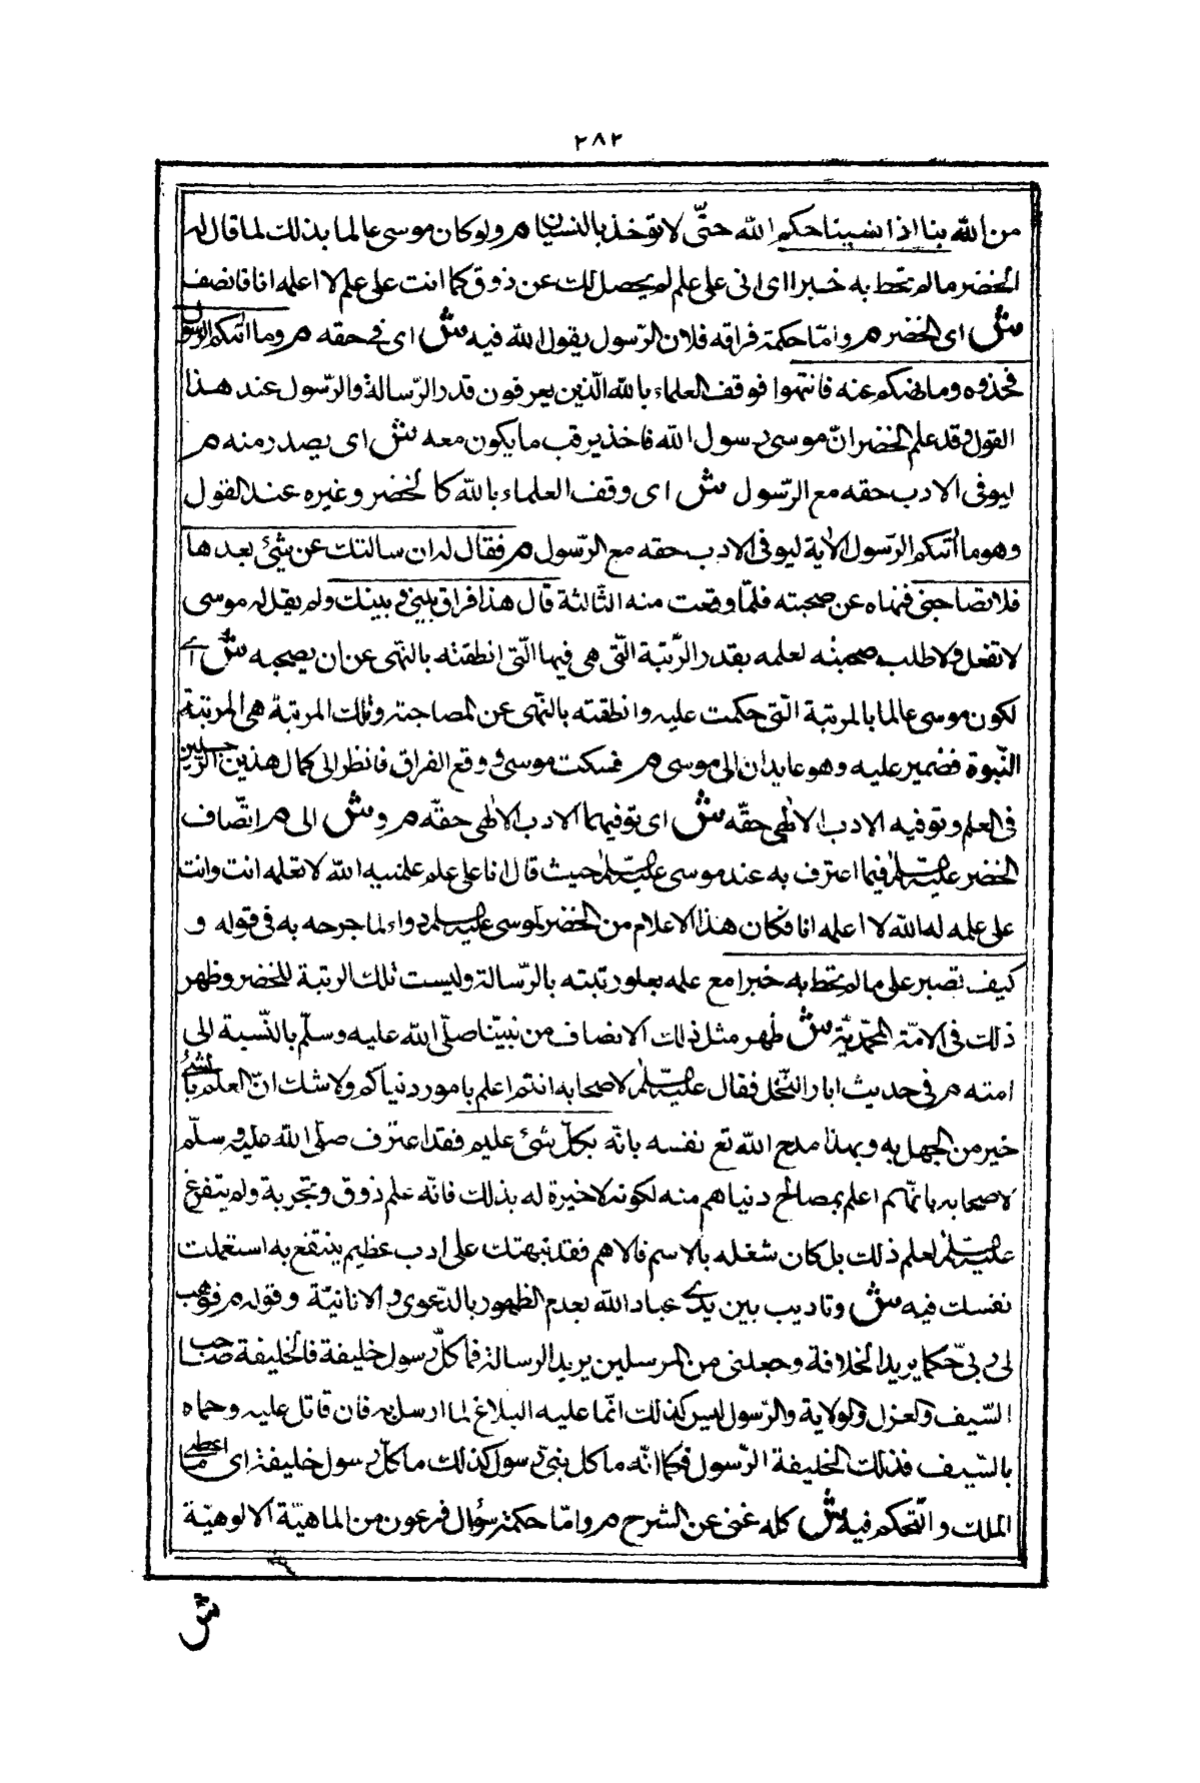 ٢٨٢
من الله بنا اذا نسينا حكم الله حتّى لا تؤخذ بالنسيان م ولو كان موسى عالما بذلك لما قال له
الخضر ما لم تحط به خبرا اى انى على علم لم يحصل لك عن ذوق كما انت على علم لا اعلمه انا فانصف
ش اى الخضر م وامّا حكمة فراقه فلان الرّسول يقول الله فيه ش اى فى حقه م وما اتيكم الرسول
فخذوه وما نهيكم عنه فانتهوا فوقف العلماء بالله الّذين يعرفون قدر الرّسالة والرّسول عند هذا
القول وقد علم الخضر انّ موسى رسول الله فاخذ يرقب ما يكون معه ش اى يصدر منه م
ليوفى الادب حقه مع الرّسول ش اى وقف العلماء بالله كالخضر وغيره عند القول
وهو ما اتيكم الرّسول الاية ليوفى الادب حقه مع الرّسول م فقال له ان سالتك عن شئ بعدها
فلا تصاحبنى فنهاه عن صحبته فلمّا وقعت منه الثّالثة قال هذا فراق بينى وبينك ولم يقل له موسى
لا تفعل ولا طلب صحبته لعلمه بقدر الرّتبة الّتى هى فيها الّتى انطقته بالنّهى عن ان يصحبه ش اى
لكون موسى عالما بالمرتبة الّتى حكمت عليه وانطقته بالنّهى عن المصاحبة وتلك المرتبة هى المرتبة
النّبوة فضمير عليه وهو عايدان الى موسى م فسكت موسى ووقع الفراق فانظر الى كمال هذين الرّجلين
فى العلم وتوفيه الادب الالهى حقّه ش اى توفيهما الادب الالهى حقّه م و ش الى م اتّصاف
الخضر عليه السّلم فيما اعترف به عند موسى عليه السّلم حيث قال انا على علم علمنيه الله لا تعلمه انت وانت
على علم علمكه الله لا اعلمه انا فكان هذا الاعلام من الخضر لموسى عليه السلم دواء لما جرحه به فى قوله و
كيف تصبر على ما لم تحط به خبرا مع علمه بعلو رتبته بالرّسالة وليست تلك الرتبة للخضر وظهر
ذلك فى الامّة المحمّديّة ش ظهر مثل ذلك الانصاف من نبيّنا صلّى الله عليه وسلّم بالنّسبة الى
امته م فى حديث ابار النّخل فقال عليه السّلم لاصحابه انتم اعلم بامور دنياكم ولا شك انّ العلم بالشئ
خير من الجهل به وبهذا مدح الله تع نفسه بانّه بكلّ شئ عليم فقد اعترف صلى الله عليه وسلّم
لاصحابه بانّهم اعلم بمصالح دنياهم منه لكونه لا خبرة له بذلك فانّه علم ذوق وتجربة ولم يتفرغ
عليه السّلم لعلم ذلك بل كان شغله بالاسم فالاهم فقد نبهتك على ادب عظيم ينتفع به استعملت
نفسك فيه ش وتاديب بين يدى عباد الله بعدم الظهور بالدّعوى والانانيّة وقوله م فوهب
لى ربّى حكما يريد الخلافة وجعلنى من المرسلين يريد الرسالة فما كلّ رسول خليفة فالخليفة صاحب
السّيف والعزل والولاية والرّسول ليس كذلك انّما عليه البلاغ لما ارسل به فان قاتل عليه وحماه
بالسّيف فذلك الخليفة الرّسول فكما انّه ما كل نبىّ رسول كذلك ما كلّ رسول خليفة اى ما اعطى
الملك والتّحكم فيه ش كله غنى عن الشرح م وامّا حكمة سؤال فرعون من الماهيّة الالوهيّة
ش